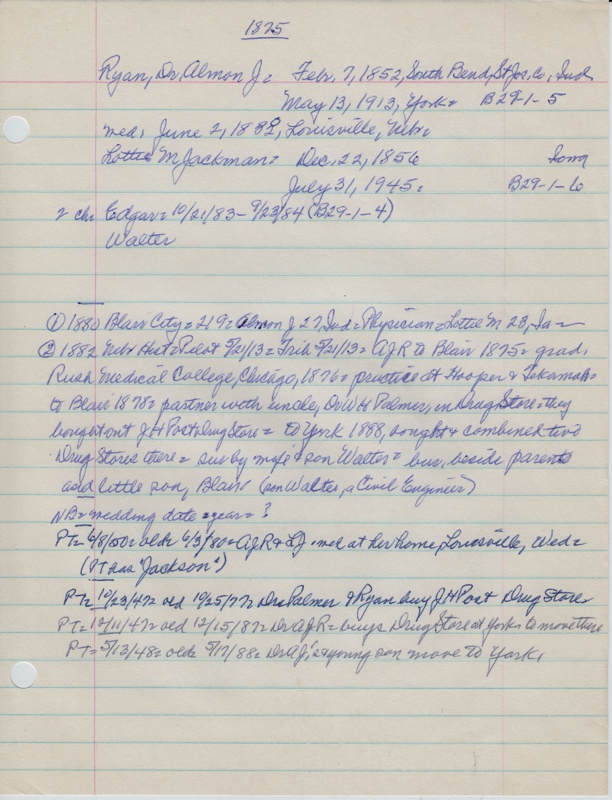 1875
Ryan, Dr. Almon J = Febr. 7, 1852, South Bend, St Jos. Co, Ind
May 13, 1913, York = B29-1-5
med: June 2, 1882, Louisville, Nebr.
Lottie M Jackman = Dec. 22, 1856 Iowa
July 31, 1945. B29-1-6
2 ch: Edgar = 10/21/83 - 9/23/84 (B29-1-4)
Walter
① 1880 Blair City = 219 = Almon J 27, Ind = Physician = Lottie M 23, Ia =
② 1882 Nebr Hist = Pilot 5/21/13 = Trib 5/21/13 = AJR to Blair 1875 = grad.
Rush Medical College, Chicago, 1876 = practice at Hooper & Tekamah =
to Blair 1878 = partner with uncle, Dr. W H Palmer, in Drug Store = they
bought out J H Post Drug Store = to York 1888, bought & combined two
Drug Stores there = sur by wife & son Walter = bur. beside parents
and little son, Blair (son Walter, a Civil Engineer)
NB = wedding date = year = ?
PT = 6/8/50 = olde 6/3/80 = AJR & LJ med at her home, Louisville, Wed =
(PT has "Jackson")
PT = 10/23/47 = old 10/25/77 = Drs Palmer & Ryan buy J H Post Drug Store
PT = 12/11/47 = old 12/15/87 = Dr AJR = buys Drug Store at York, to move there
PT = 5/13/48 = olde 5/17/88 = Dr AJ, & young son move to York.